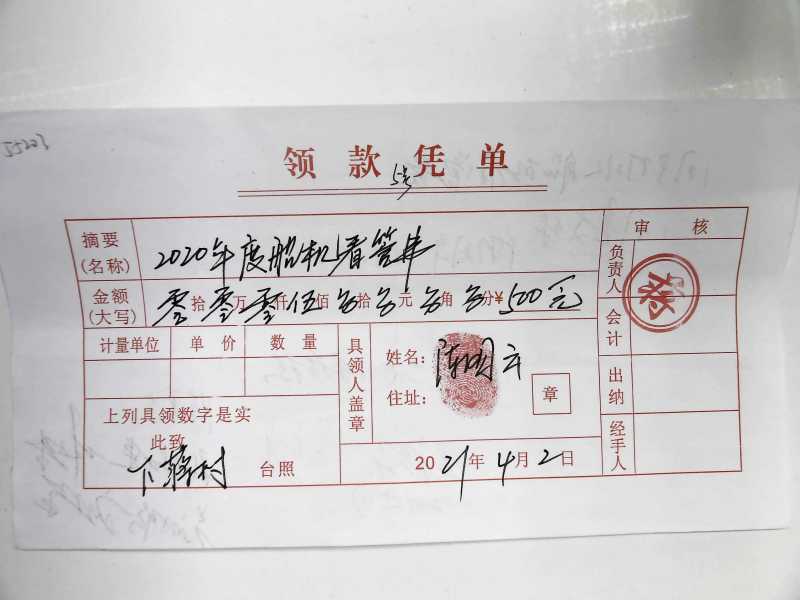 55203
领款凭单
5号
摘要(名称) 2020年度船机看管费
金额(大写) 零拾零万零仟伍佰零拾零元零角零分¥500元
审核
负责人
会计
出纳
经手人
计量单位 单价 数量
具领人盖章
姓名:
住址:
章
上列具领数字是实
此致
下薛村 台照
2021年4月2日